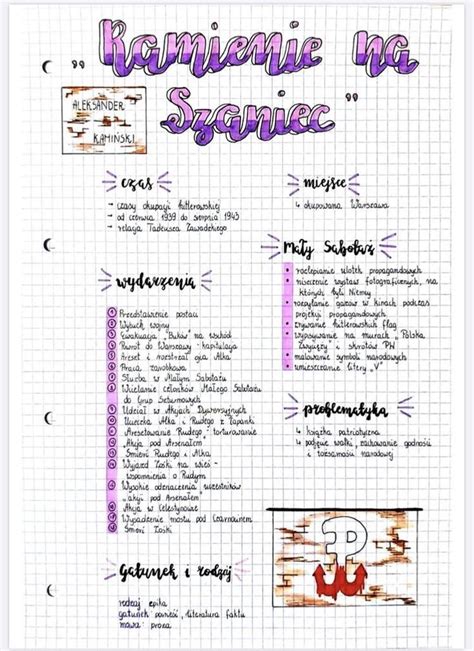 "Kamienie na
Szaniec"
ALEKSANDER
KAMIŃSKI
czas
- czasy okupacji hitlerowskiej
- od czerwca 1939 do sierpnia 1943
- relacja Tadeusza Zawadzkiego
miejsce
okupowana Warszawa
wydarzenia
1 Przedstawienie postaci
2 Wybuch wojny
3 Ewakuacja "Buków" na wschód
4 Powrót do Warszawy - kapitulacja
5 Areszt i rozstrzał ojca Alka
6 Praca zarobkowa
7 Służba w Małym Sabotażu
8 Wcielanie członków Małego Sabotażu
do Grup Szturmowych
9 Udział w Akcjach Dywersyjnych
10 Ucieczka Alka i Rudego z łapanki
11 Aresztowanie Rudego - torturowanie
12 "Akcja pod Arsenałem"
13 Śmierć Rudego i Alka
14 Wyjazd Zośki na wieś -
wspomnienia o Rudym
15 Wysokie odznaczenia uczestników
"akcji pod Arsenałem"
16 Akcja w Celestynowie
17 Wysadzenie mostu pod Czarnocinem
18 Śmierć Zośki
Mały Sabotaż
rozlepianie ulotek propagandowych
niszczenie wystaw fotograficznych, na
których byli Niemcy
rozpylanie gazów w kinach podczas
projekcji propagandowych
zrywanie hitlerowskich flag
wypisywanie na murach "Polska
Zwycięży" i skrótów PW
malowanie symboli narodowych
umieszczanie litery "V"
problematyka
książka patriotyczna
podjęcie walki, zachowanie godności
i tożsamości narodowej
gatunek i rodzaj
rodzaj epika
gatunek powieść, literatura faktu
mowa: proza